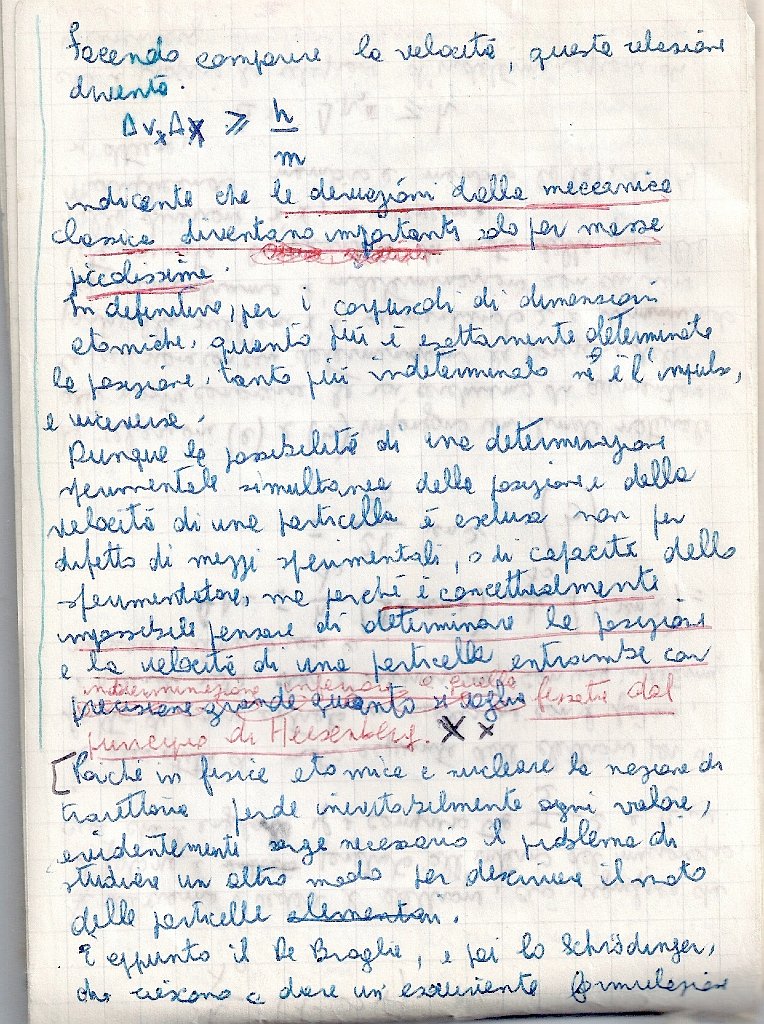 Facendo comparire la velocità, questa relazione
diventa.
Δvₓ Δx ⩾ h
m
indicante che le deviazioni dalla meccanica
classica diventano importanti solo per masse
piccolissime.
In definitiva, per i corpuscoli di dimensioni
atomiche, quanto più è esattamente determinata
la posizione, tanto più indeterminato né è l'impulso,
e viceversa.
Dunque la possibilità di una determinazione
sperimentale simultanea della posizione e della
velocità di una particella è esclusa non per
difetto di mezzi sperimentali, o di capacità dello
sperimentatore, ma perché è concettualmente
impossibile pensare di determinare la posizione
e la velocità di una particella entrambe con
indeterminazione inferiore a quella
precisione grande quanto si voglia fissata dal
principio di Heisenberg. X x
[Poiché in fisica atomica e nucleare la nozione di
traiettoria perde inevitabilmente ogni valore,
evidentemente sorge necessario il problema di
studiare un altro modo per descrivere il moto
delle particelle elementari.
È appunto il De Broglie, e poi lo Schrödinger,
che riescono a dare un'esauriente formulazione